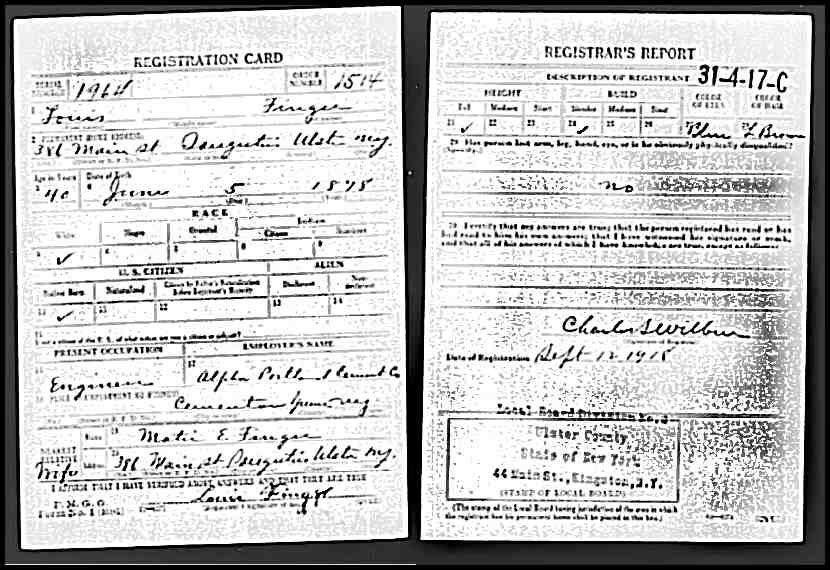 REGISTRATION CARD
SERIAL NUMBER 1964 ORDER NUMBER 1514
1 Louis Finger
2 PERMANENT HOME ADDRESS:
386 Main St Saugerties Ulster N.Y.
Age in Years Date of Birth
3 40 4 June 5 1878
RACE
White Negro Oriental Indian
Citizen Noncitizen
5 ✓ 6 7 8 9
U. S. CITIZEN ALIEN
Native Born Naturalized Citizen by Father's Naturalization Before Registrant's Majority Declarant Non-declarant
10 ✓ 11 12 13 14
15
If not a citizen of the U. S., of what nation are you a citizen or subject?
PRESENT OCCUPATION EMPLOYER'S NAME
16 Engineer 17 Alpha Portland Cement Co
18 PLACE OF EMPLOYMENT OR BUSINESS
Cementon Greene N.Y.
NEAREST RELATIVE Name 19 Matie E. Finger
Wife Address 20 386 Main St Saugerties Ulster N.Y.
I AFFIRM THAT I HAVE VERIFIED ABOVE ANSWERS AND THAT THEY ARE TRUE
P. M. G. O.
Form No. 1 (Red) Louis Finger
REGISTRAR'S REPORT
31-4-17-C
DESCRIPTION OF REGISTRANT
HEIGHT BUILD COLOR OF EYES COLOR OF HAIR
Tall Medium Short Slender Medium Stout
21 ✓ 22 23 24 ✓ 25 26 27 Blue 28 L Brown
29 Has person lost arm, leg, hand, eye, or is he obviously physically disqualified?
(Specify.)
no
30 I certify that my answers are true; that the person registered has read or has
had read to him his own answers; that I have witnessed his signature or mark,
and that all of his answers of which I have knowledge are true, except as follows:
Charles S Wilbur
(Signature of Registrar)
Date of Registration Sept 12 1918
Local Board Division No. 2
Ulster County,
State of New York,
44 Main St., Kingston, N.Y.
(STAMP OF LOCAL BOARD)
(The stamp of the Local Board having jurisdiction of the area in which
the registrant has his permanent home shall be placed in this box.)